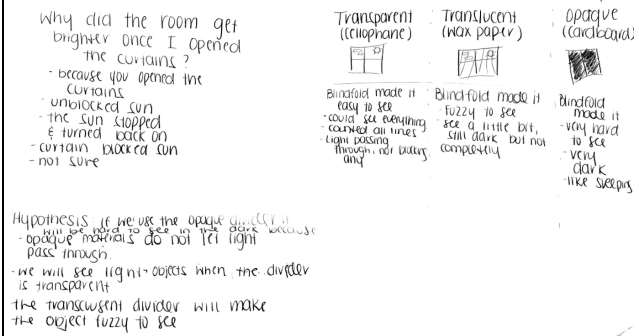 Why did the room get
brighter once I opened
the curtains?
- because you opened the
curtains
- unblocked sun
- the sun stopped
& turned back on
- curtain blocked sun
- not sure
Transparent
(cellophane)
Blindfold made it
easy to see
- could see everything
- counted all lines
- light passing
through, not blocking
any
Translucent
(wax paper)
Blindfold made it
- fuzzy to see
- see a little bit,
still dark but not
completely
opaque
(cardboard)
Blindfold
made it
- very hard
to see
- very
dark
- like sleeping
Hypothesis: if we use the opaque divider it
will be hard to see in the dark because
- opaque materials do not let light
pass through.
- we will see light + objects when the divider
is transparent
the translucent divider will make
the object fuzzy to see